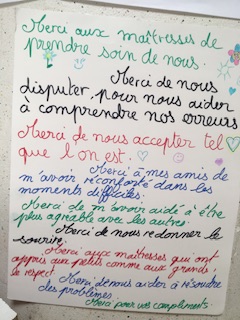 Merci aux maîtresses de
prendre soin de nous.
Merci de nous
disputer, pour nous aider
à comprendre nos erreurs
Merci de nous accepter tel
que l'on est.
Merci à mes amis de
m'avoir réconforté dans les
moments difficiles.
Merci de m'avoir aidé à être
plus agréable avec les autres.
Merci de nous redonner le
sourire.
Merci aux maîtresses qui ont
appris aux petits comme aux grands,
le respect
Merci de nous aider à résoudre
des problèmes
Merci pour vos compliments.